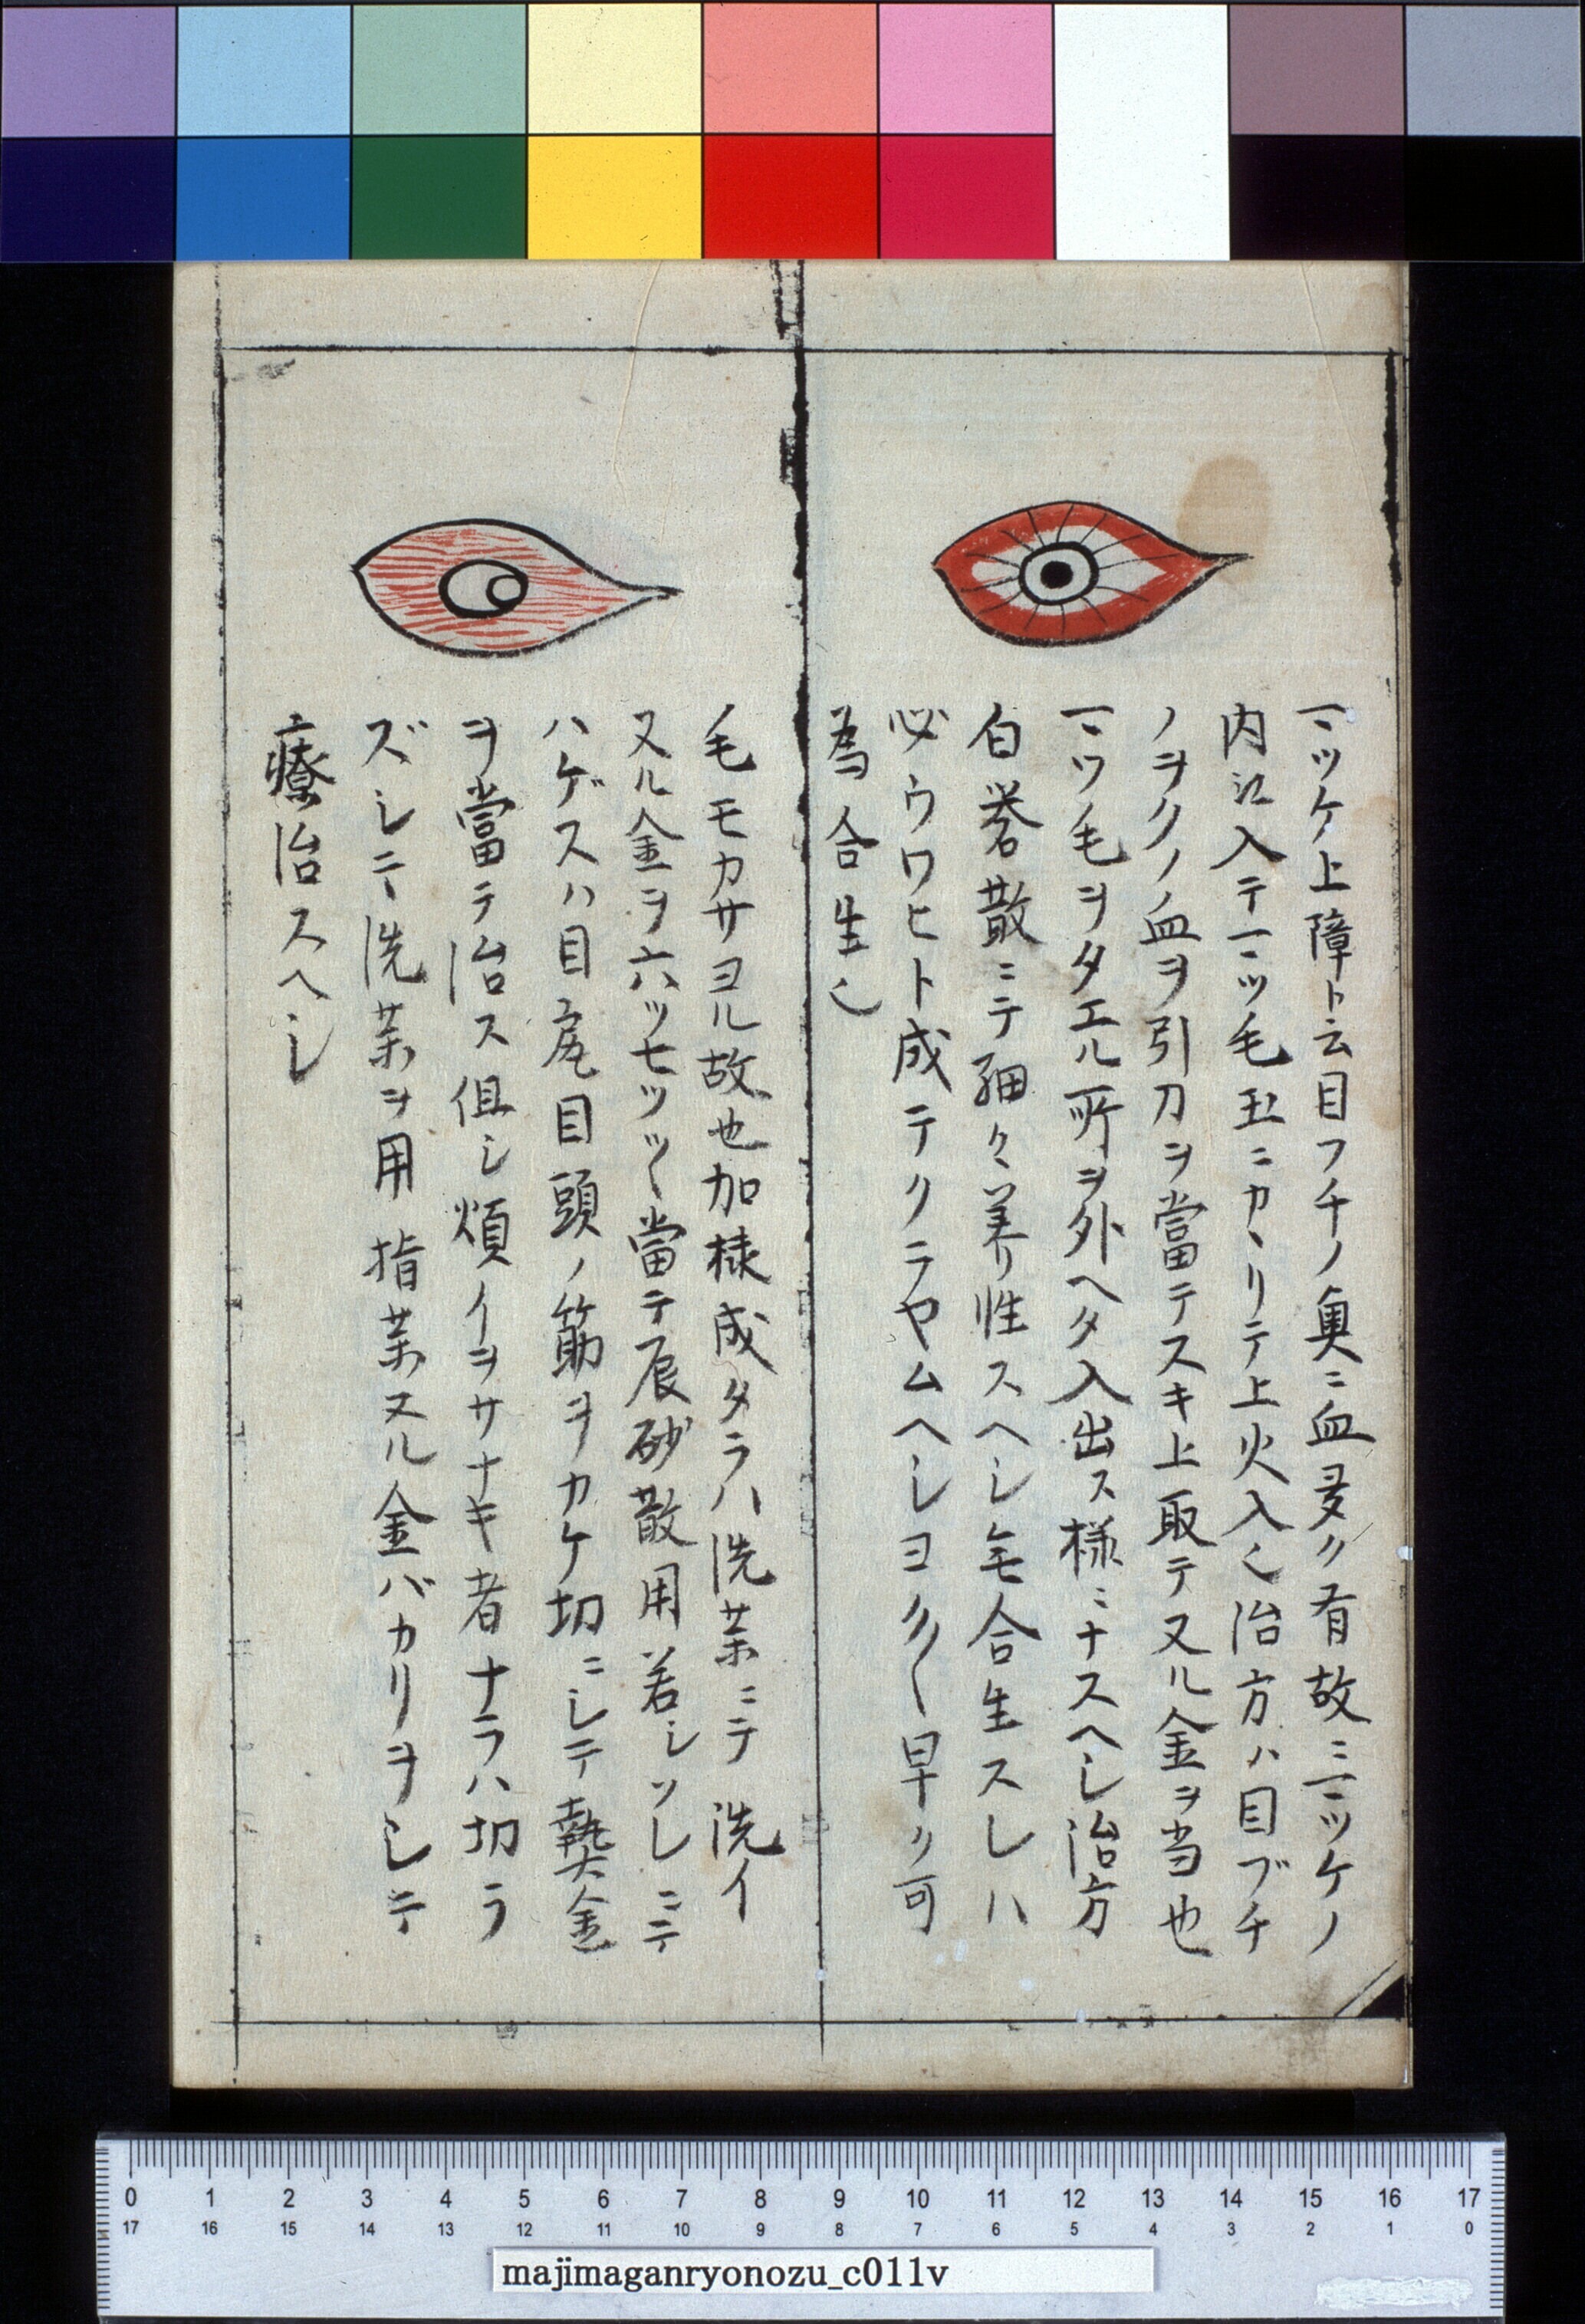 マツケ上障ト云目フチノ奥ニ血多ク有故ニマツケノ
内江入テマツ毛玉ニカヽリテ上火入也治方ハ目ブチ
ノヲクノ血ヲ引刀ヲ當テスキ上取テヌル金ヲ当也
マツ毛ヲタエル所ヲ外ヘタ入出ス様ニナスヘシ治方
白礬散ニテ細々養性スヘシ毛合生スレハ
必ウワヒト成テクニヤムヘシヨク〱早ク可
為合生也
毛モカサヨル故也加様成タラハ洗薬ニテ洗イ
ヌル金ヲ六ツセツツ〱當テ辰砂散用若シソレニテ
ハゲスハ目尻目頭ノ筋ヲカケ切ニシテ熱金
ヲ當テ治ス但シ煩イヲサナキ者ナラハ切ラ
ズシテ洗薬ヲ用指薬ヌル金バカリヲシテ
療治スヘシ
0 1 2 3 4 5 6 7 8 9 10 11 12 13 14 15 16 17
17 16 15 14 13 12 11 10 9 8 7 6 5 4 3 2 1 0
majimaganryonozu_c011v